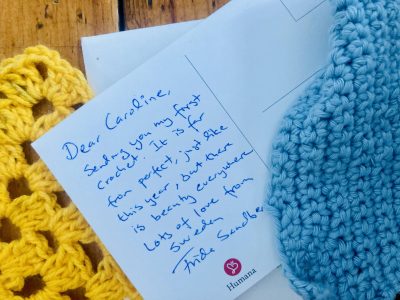 Dear Caroline,
Sending you my first
crochet. It is far
from perfect, just like
this year, but there
is beauty everywhere
Lots of love from
Sweden
Frida
Humana